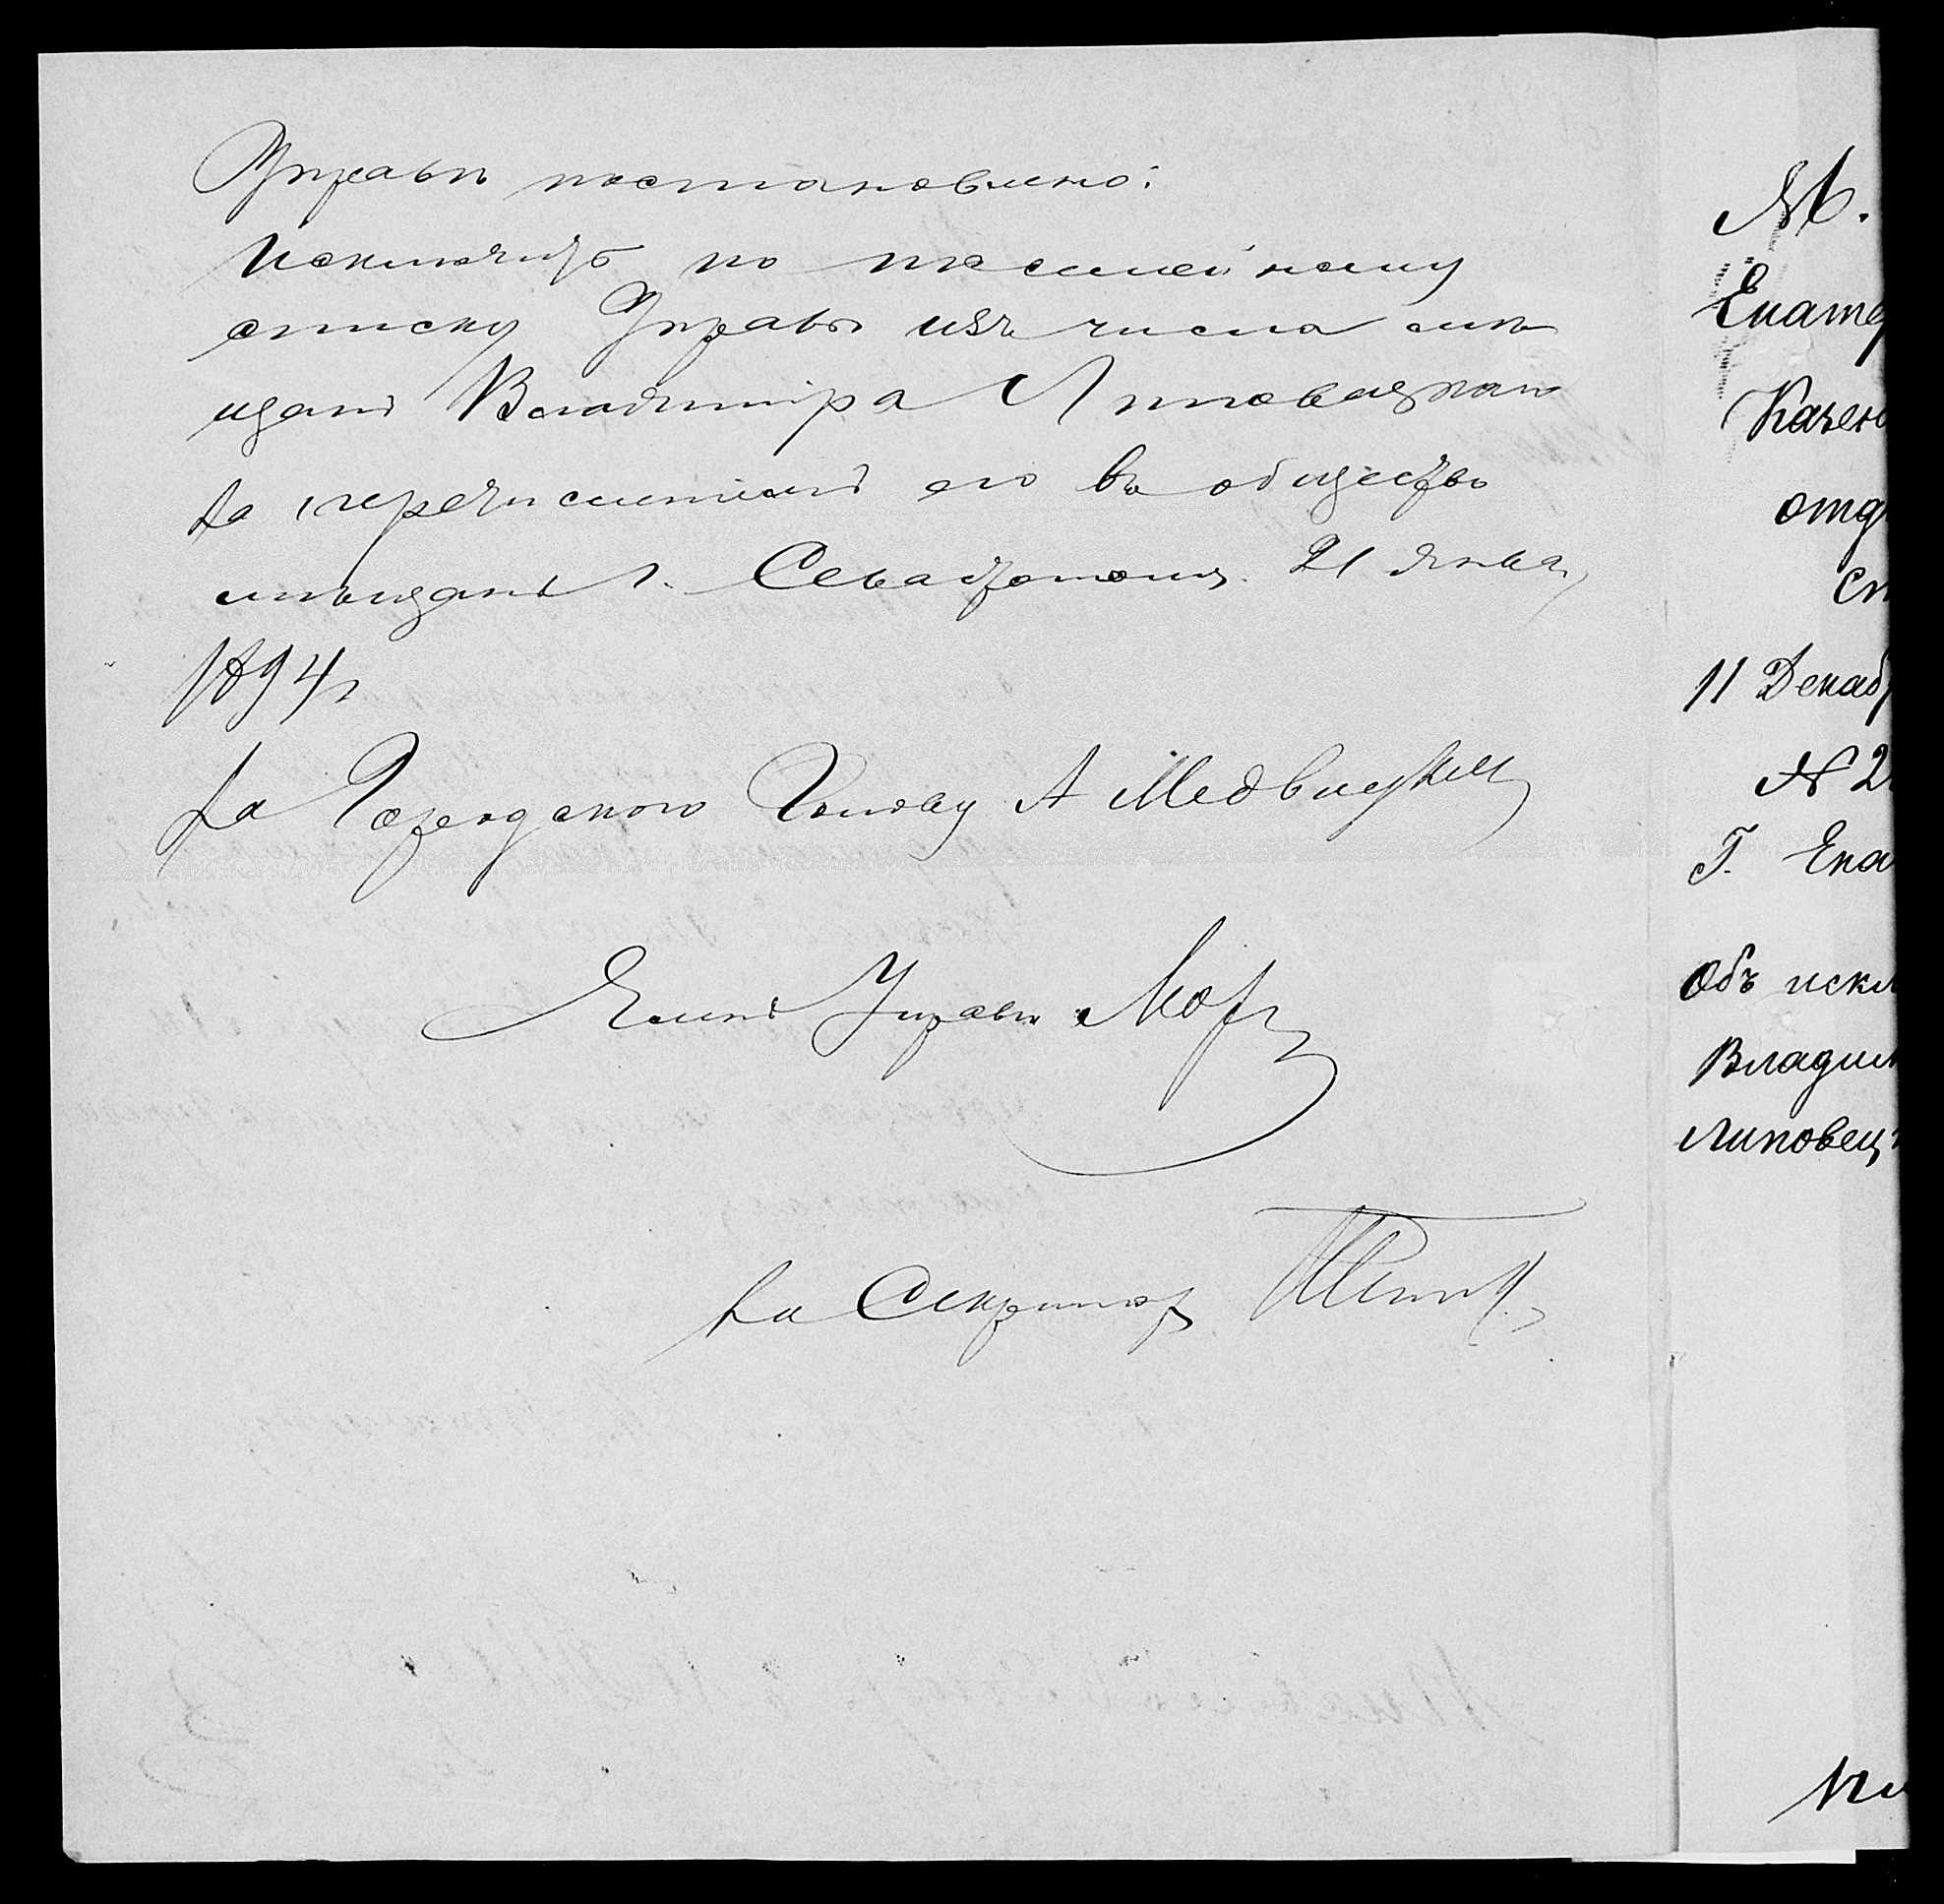 Управы постановлено:
Исключить по посемейному
списку Управы изъ числа мѣ
щанъ Владиміра Липовецкаго
за перечисленіемъ его въ общество
мѣщанъ г. Севастополя. 21 Янва
1894 г
За Городского Голову А Медвидскій
Членъ Управы
За Секретаря
М.
Екате
Казен
отд
ст
11 Декаб
№ 2
Г. Ека
Объ искл
Владим
Липовец